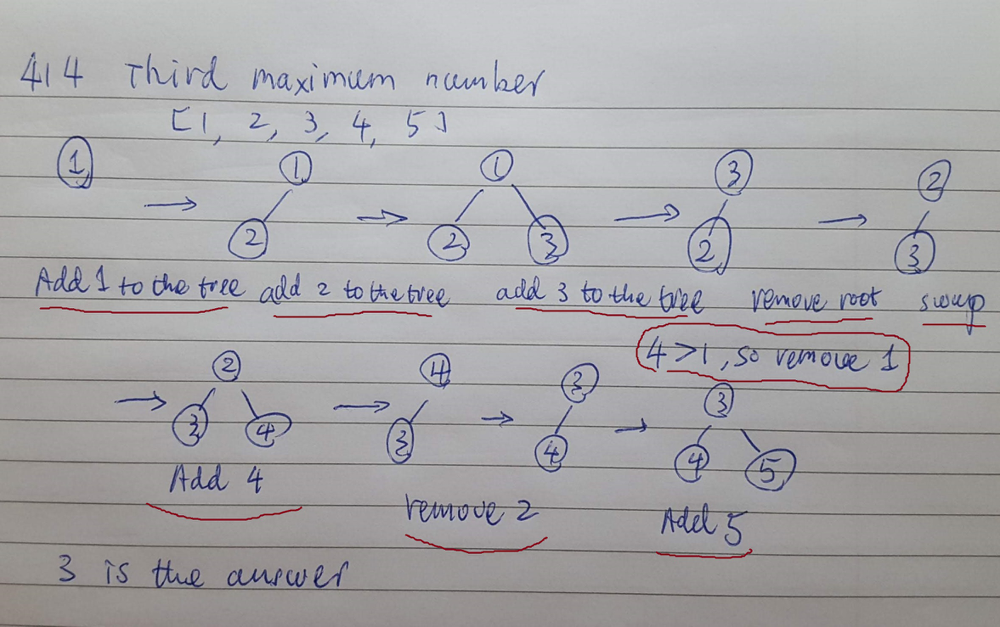 414 Third maximum number
[1, 2, 3, 4, 5]
1
1
2
1
2 3
3
2
2
3
Add 1 to the tree
add 2 to the tree
add 3 to the tree
remove root
swap
4>1, so remove 1
2
3 4
4
3
3
4
3
4 5
Add 4
remove 2
Add 5
3 is the answer